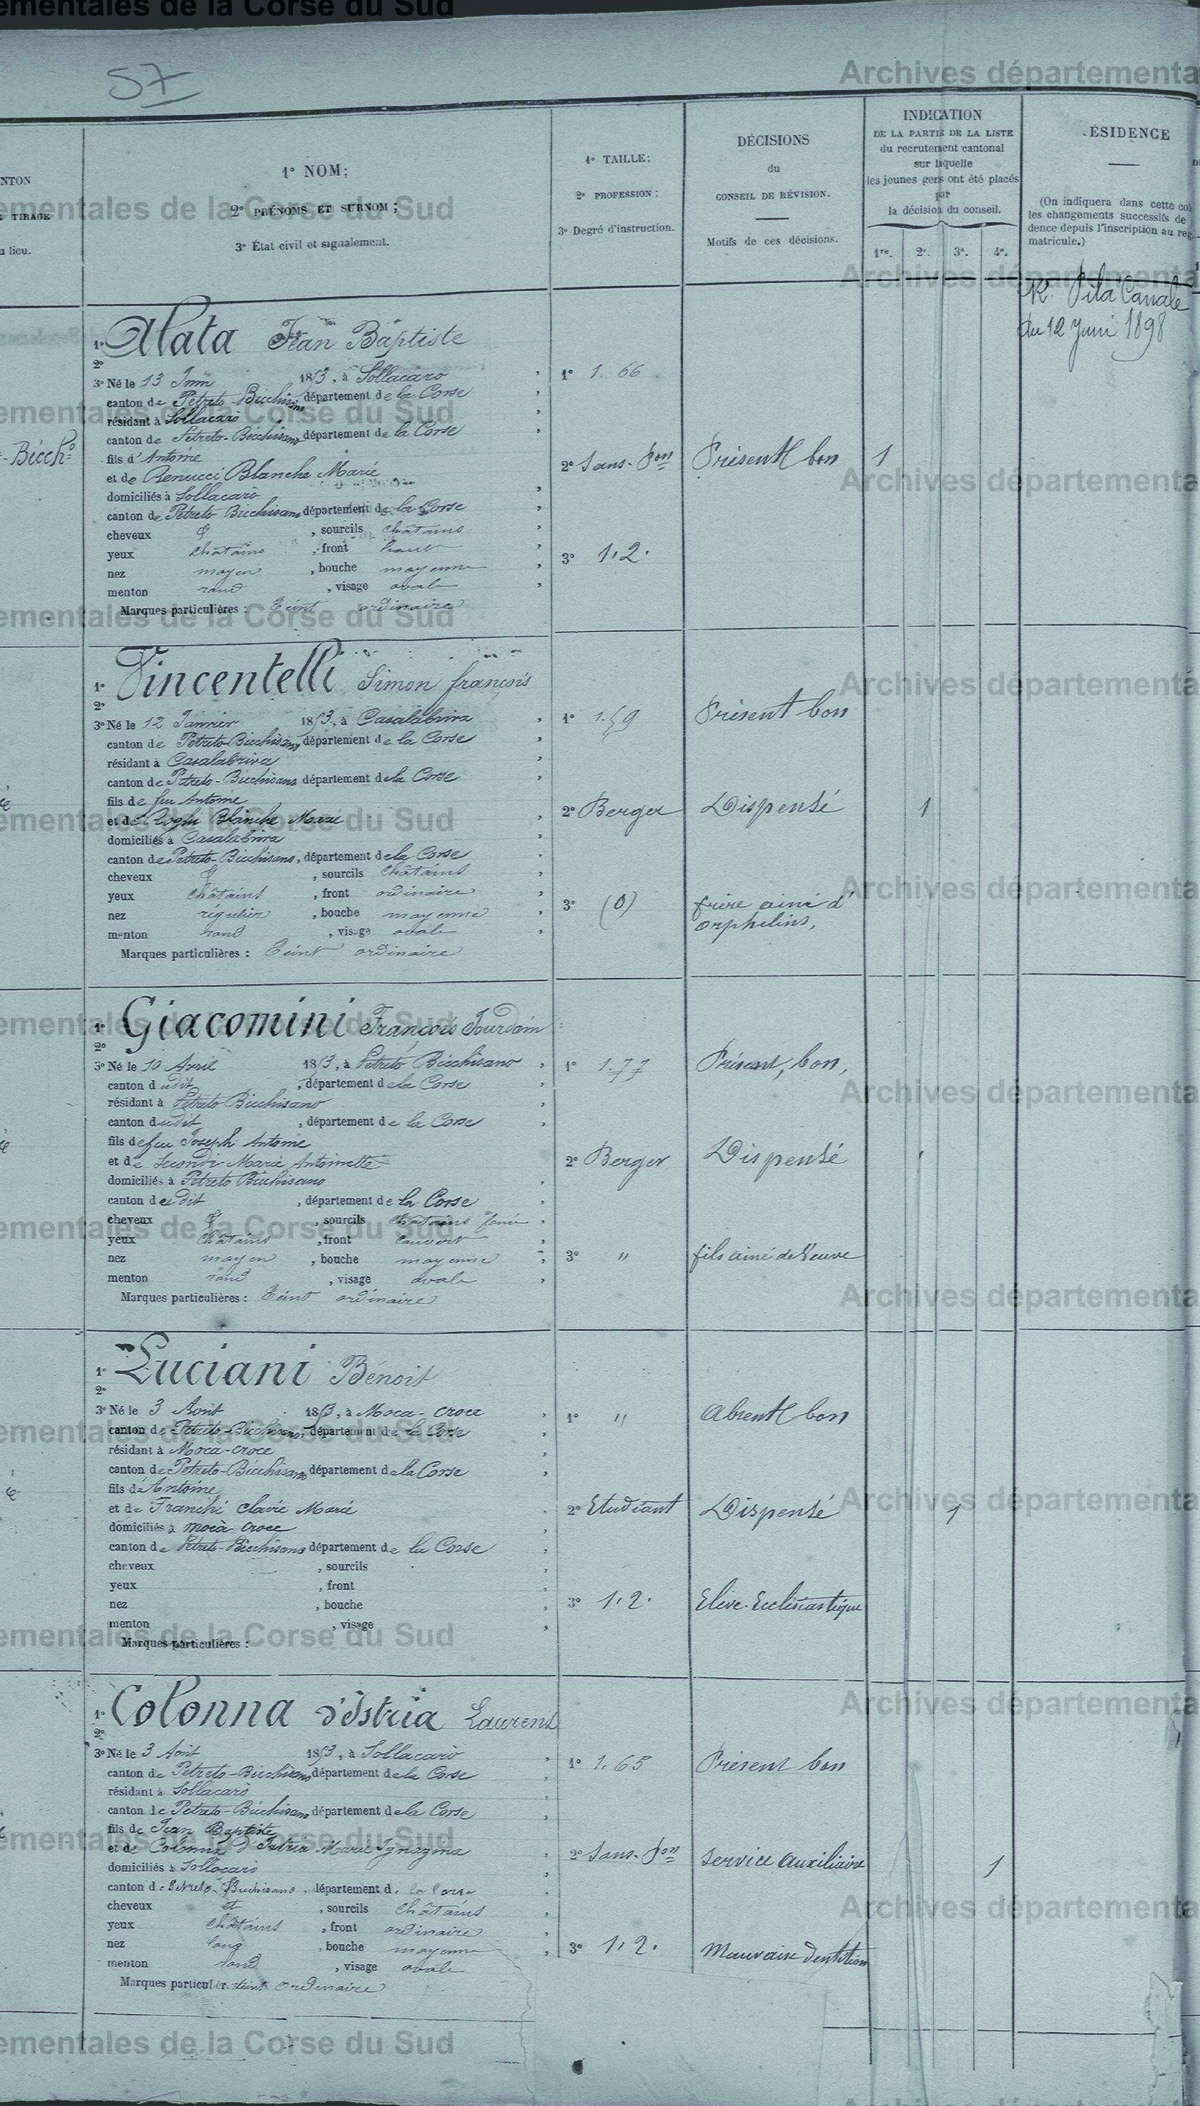 ementales de la Corse du Sud
Archives départementa
57
NTON
TIRAGE
u lieu.
1º NOM;
2º PRÉNOMS ET SURNOM;
3º État civil et signalement.
1º TAILLE;
2º PROFESSION;
3º Degré d'instruction.
DÉCISIONS
du
CONSEIL DE RÉVISION.
Motifs de ces décisions.
INDICATION
DE LA PARTIE DE LA LISTE
du recrutement cantonal
sur laquelle
les jeunes gens ont été placés
par
la décision du conseil.
1re. 2e. 3e. 4e.
RÉSIDENCE
(On indiquera dans cette co
les changements successifs de
dence depuis l'inscription au reg
matricule.)
R. Pila Canale
du 12 Juin 1898
Bicch.º
1º Alata Jean Baptiste
2º
3º Né le 13 Juin 1853, à Sollacaro
canton de Petreto-Bicchisano département de la Corse
résidant à Sollacaro
canton de Petreto-Bicchisano département de la Corse
fils d'Antoine
et de Renucci Blanche Marie
domiciliés à Sollacaro
canton de Petreto Bicchisano département de la Corse
cheveux et, sourcils châtains
yeux châtains, front haut
nez moyen, bouche moyenne
menton rond, visage ovale
Marques particulières : Teint ordinaire
1º 1.66
2º Sans-Pon
3º 1.2.
Présent bon
1
1º Vincentelli Simon françois
2º
3º Né le 12 Janvier 1853, à Casalabriva
canton de Petreto-Bicchisano département de la Corse
résidant à Casalabriva
canton de Petreto-Bicchisano département de la Corse
fils de feu Antoine
et de Blanche Marie
domiciliés à Casalabriva
canton de Petreto-Bicchisano, département de la Corse
cheveux et, sourcils châtains
yeux châtains, front ordinaire
nez régulier, bouche moyenne
menton rond, visage ovale
Marques particulières : Teint ordinaire
1º 1.59
2º Berger
3º (0)
Présent bon
Dispensé
frère ainé d'
orphelins,
1
1º Giacomini François Jourdain
2º
3º Né le 10 Avril 1853, à Petreto Bicchisano
canton dudit, département de la Corse
résidant à Petreto Bicchisano
canton dudit, département de la Corse
fils de feu Joseph Antoine
et de Secondi Marie Antoinette
domiciliés à Petreto Bicchisano
canton dudit, département de la Corse
cheveux et, sourcils châtains foncé
yeux châtains, front couvert
nez moyen, bouche moyenne
menton rond, visage ovale
Marques particulières : Teint ordinaire
1º 1.77
2º Berger
3º "
Présent, bon,
Dispensé
fils ainé de Veuve
1º Luciani Bénoit
2º
3º Né le 3 Août 1853, à Moca-Croce
canton de Petreto-Bicchisano, département de la Corse
résidant à Moca-Croce
canton de Petreto-Bicchisano département de la Corse
fils de Antoine
et de Franchi Claire Marie
domiciliés à Moca Croce
canton de Petreto-Bicchisano département de la Corse
cheveux, sourcils
yeux, front
nez, bouche
menton, visage
Marques particulières :
1º "
2º Etudiant
3º 1.2.
Absent bon
Dispensé
Elève-Ecclésiastique
1
1º Colonna d'Istria Laurent
2º
3º Né le 3 Août 1853, à Sollacaro
canton de Petreto-Bicchisano département de la Corse
résidant à Sollacaro
canton de Petreto-Bicchisano département de la Corse
fils de Jean Baptiste
et de Colonna d'Istria Marie
domiciliés à Sollacaro
canton de Petreto Bicchisano, département de la Corse
cheveux et, sourcils châtains
yeux châtains, front ordinaire
nez long, bouche moyenne
menton rond, visage ovale
Marques particulier. teint ordinaire
1º 1.65
2º Sans-Pon
3º 1.2.
Présent bon
Service Auxiliaire
Mauvaise dentition
1